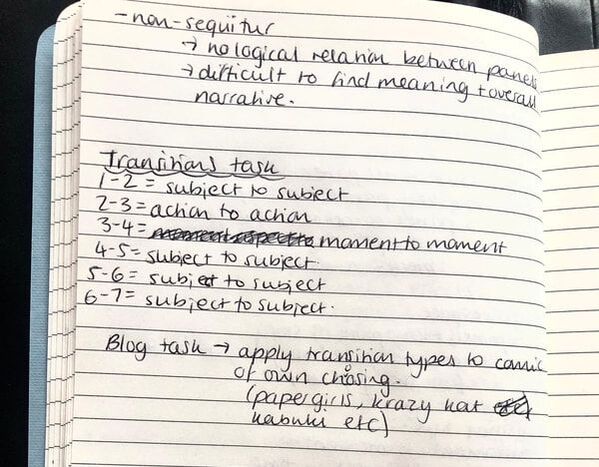 -non-sequitur
→ no logical relation between panels
→ difficult to find meaning + overall
narrative.
Transitions task
1-2 = subject to subject
2-3 = action to action
3-4 = moment to moment
4-5 = subject to subject.
5-6 = subject to subject
6-7 = subject to subject.
Blog task → apply transition types to comic
of own chosing.
(papergirls, krazy kat
kabuki etc)